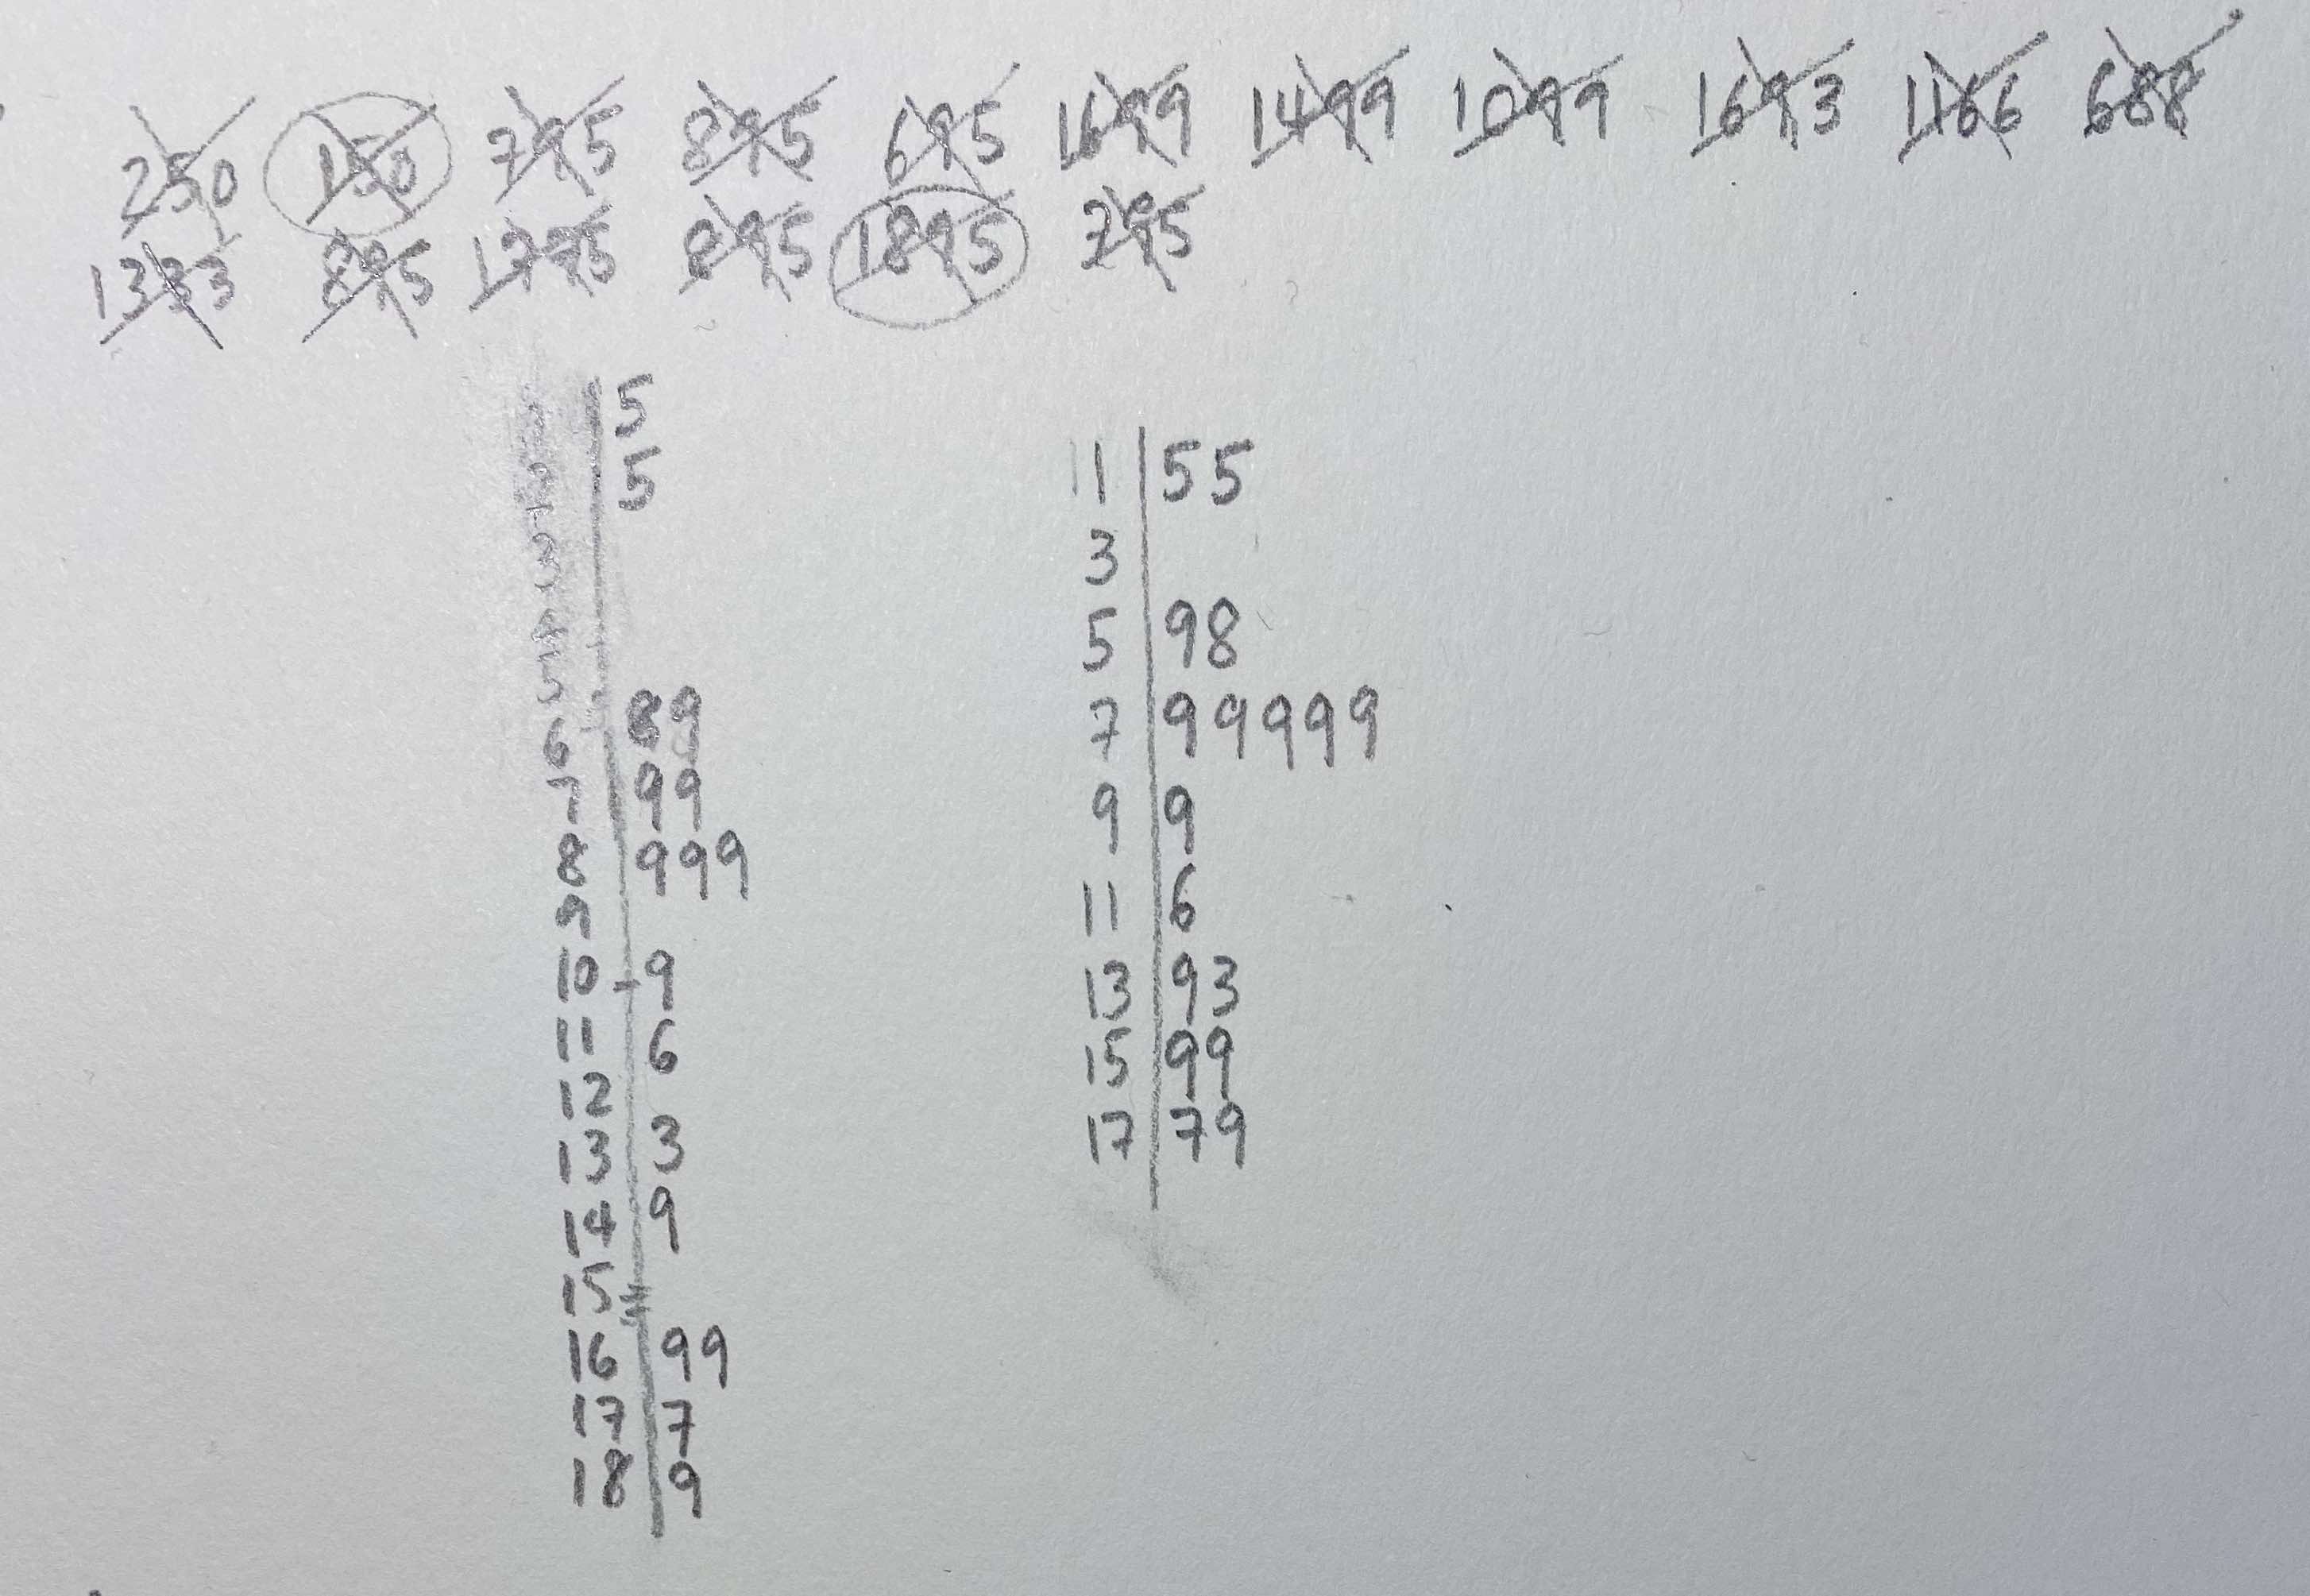 250 150 795 895 695 1699 1499 1099 1693 1166 688
1333 895 1775 895 1895 795
1 | 5
2 | 5
3 |
4 |
5 |
6 | 89
7 | 99
8 | 999
9 |
10 | 9
11 | 6
12 |
13 | 3
14 | 9
15 |
16 | 99
17 | 7
18 | 9
1 | 55
3 |
5 | 98
7 | 99999
9 | 9
11 | 6
13 | 93
15 | 99
17 | 79